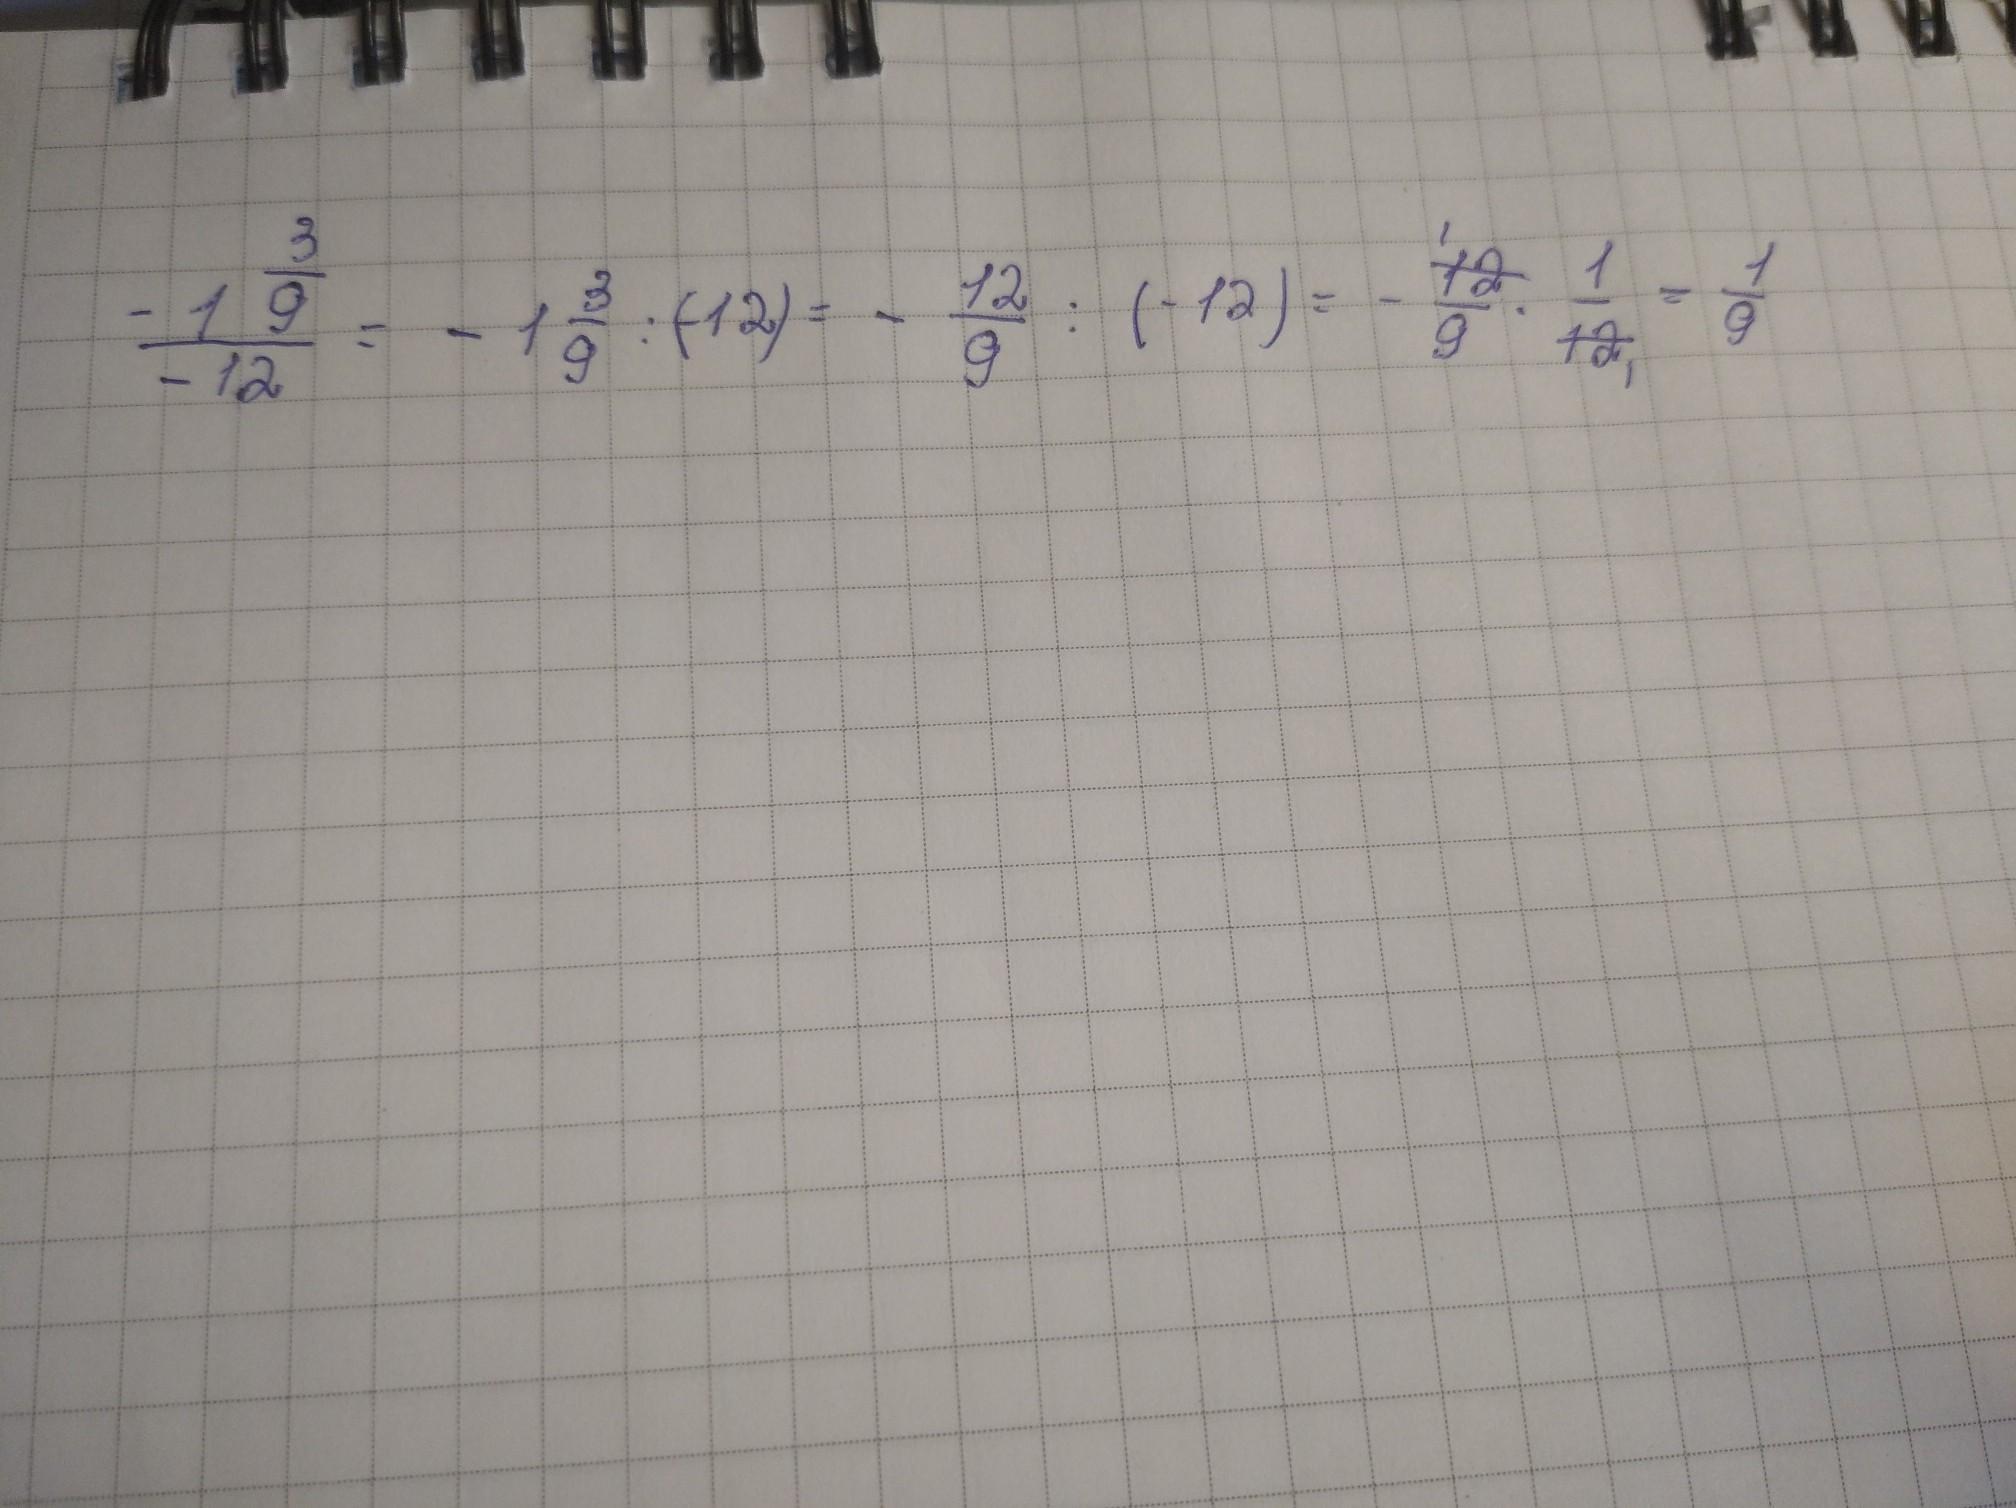 -1 3/9 / -12 = - 1 3/9 : (-12) = - 12/9 : (-12) = - 12/9 · 1/12 = 1/9